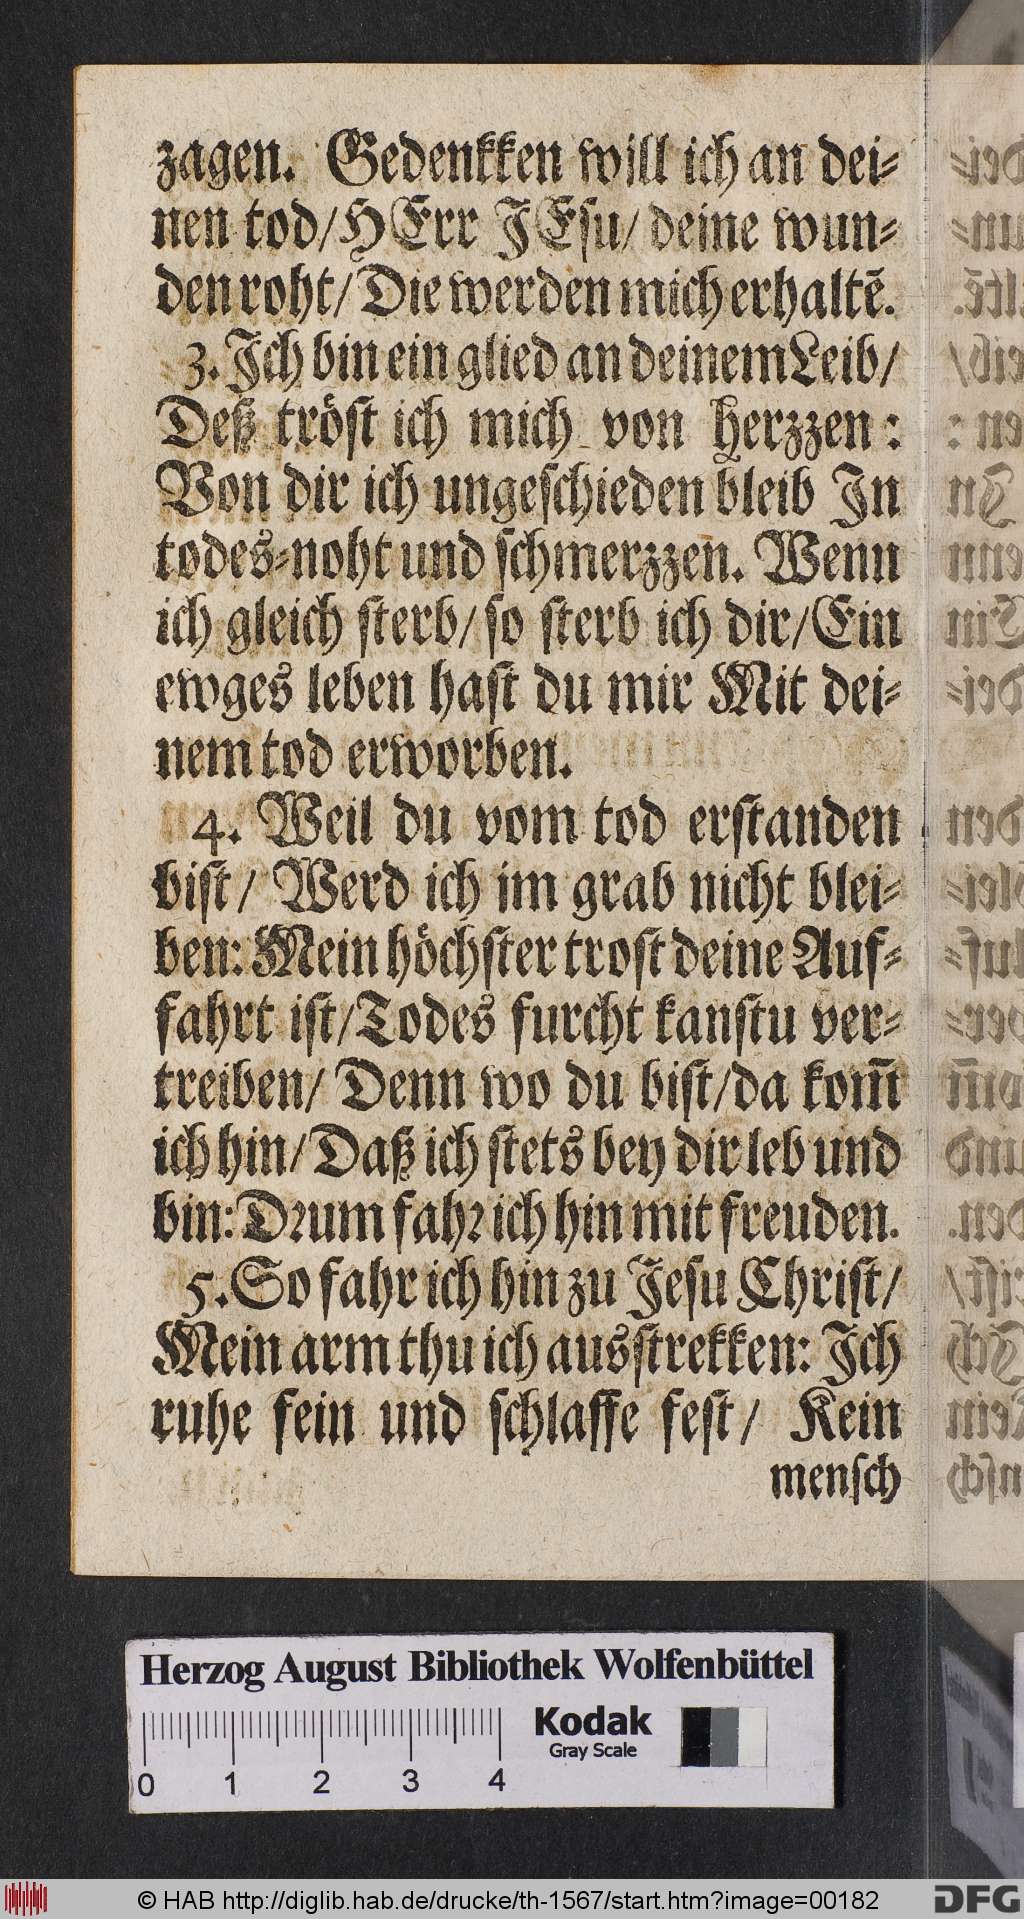 zagen. Gedenkken will ich an dei-
nen tod/HErr JEsu/ deine wun-
den roht/Die werden mich erhaltē.
3. Jch bin ein glied an deinem Leib/
Deß tröst ich mich von herzzen:
Von dir ich ungeschieden bleib Jn
todes-noht und schmerzzen. Wenn
ich gleich sterb/so sterb ich dir/Ein
ewges leben hast du mir Mit dei-
nem tod erworben.
4. Weil du vom tod erstanden
bist/ Werd ich im grab nicht blei-
ben: Mein höchster trost deine Auf-
fahrt ist/Todes furcht kanstu ver-
treiben/ Denn wo du bist/da kom̃
ich hin/Daß ich stets bey dir leb und
bin: Drum fahr ich hin mit freuden.
5. So fahr ich hin zu Jesu Christ/
Mein arm thu ich ausstrekken: Jch
ruhe fein und schlaffe fest/ Kein
mensch
Herzog August Bibliothek Wolfenbüttel
Kodak
Gray Scale
0 1 2 3 4
© HAB http://diglib.hab.de/drucke/th-1567/start.htm?image=00182
DFG